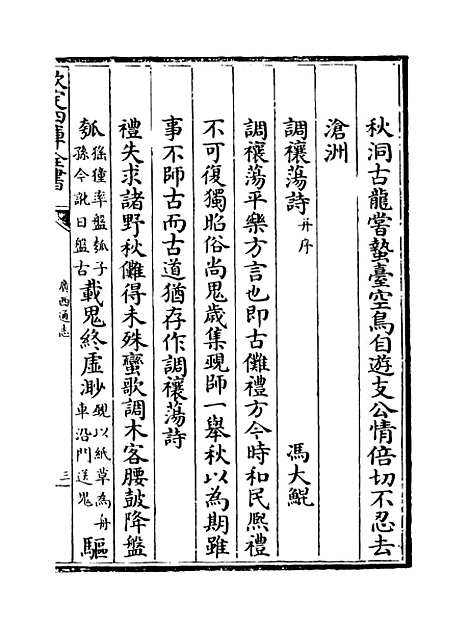 秋洞古龍嘗蟄臺空鳥自遊支公情倍切不忍去
滄洲
調禳蕩詩并序
馮大鯤
調禳蕩平樂方言也即古儺禮方今時和民熈禮
不可復獨昭俗尚鬼歲集覡師一舉秋以為期雖
事不師古而古道猶存作調禳蕩詩
禮失求諸野秋儺得未殊蠻歌調木客腰鼓降盤
瓠猺獞率盤瓠子孫今訛曰盤古載鬼終虛渺覡以紙草為舟車沿門送鬼驅
欽定四庫全書
廣西通志
三